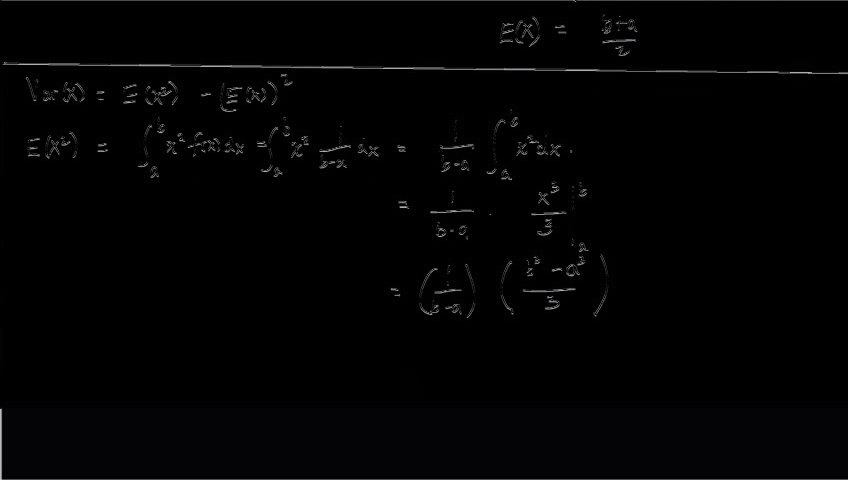 E(X) = \frac{b+a}{2}
Var(X) = E(X²) - (E(X))²
E(X²) = ∫_a^b x² f(x) dx = ∫_a^b x² \frac{1}{b-a} dx = \frac{1}{b-a} ∫_a^b x² dx.
= \frac{1}{b-a} · \frac{x³}{3} |_a^b
= (\frac{1}{b-a}) (\frac{b³ - a³}{3})